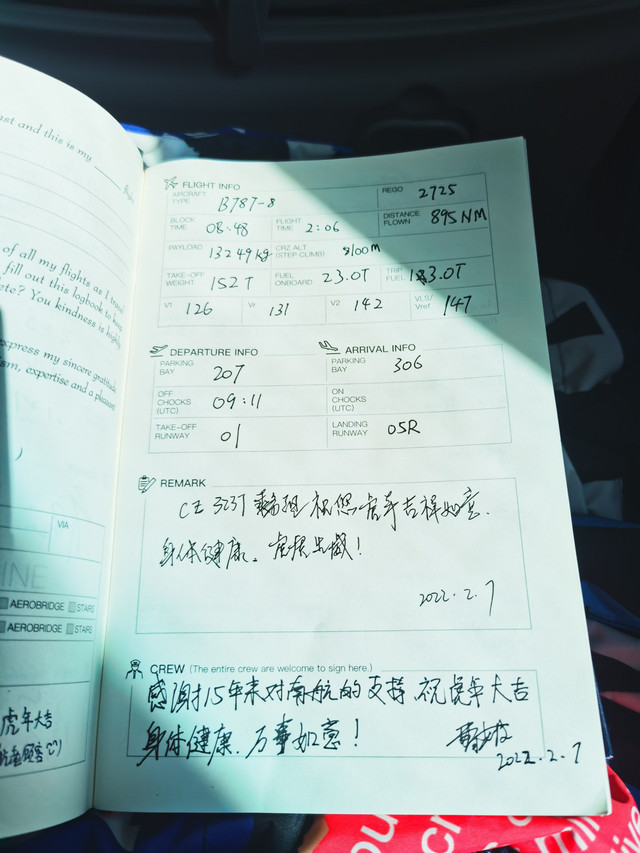 ast and this is my
of all my flights as I travel
fill out this logbook to keep
You kindness is highly
express my sincere gratitude
ism, expertise and a pleasant
VIA
INE
AEROBRIDGE STAIRS
AEROBRIDGE STAIRS
虎年大吉
FLIGHT INFO
AIRCRAFT TYPE B787-8 REGO 2725
BLOCK TIME 08:48 FLIGHT TIME 2:06 DISTANCE FLOWN 895NM
PAYLOAD 13249kg CRZ ALT (STEP CLIMB) 8100M
TAKE-OFF WEIGHT 152T FUEL ONBOARD 23.0T TRIP FUEL 13.0T
V1 126 Vr 131 V2 142 VLS/Vref 147
DEPARTURE INFO ARRIVAL INFO
PARKING BAY 207 PARKING BAY 306
OFF CHOCKS (UTC) 09:11 ON CHOCKS (UTC)
TAKE-OFF RUNWAY 01 LANDING RUNWAY 05R
REMARK
CZ 3237 机组祝您虎年吉祥如意.
身体健康。虎虎生威!
2022.2.7
CREW (The entire crew are welcome to sign here.)
感谢15年来对南航的支持 祝虎年大吉
身体健康.万事如意!
2022.2.7